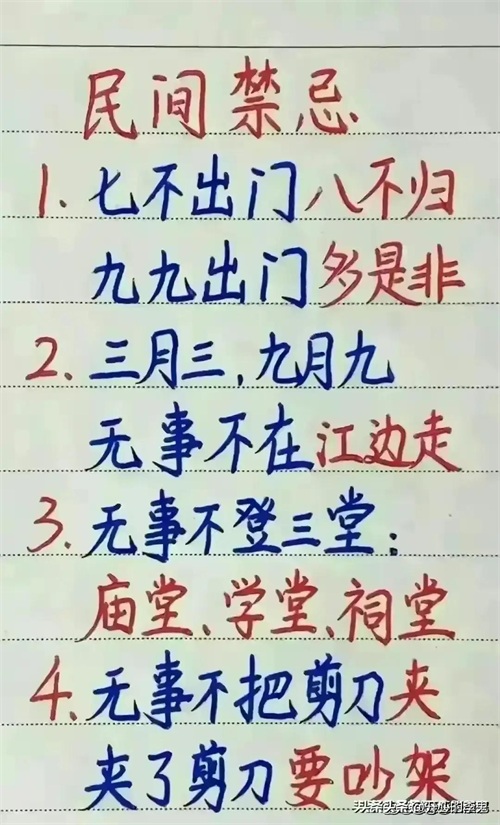 民间禁忌
1. 七不出门八不归
九九出门多是非
2. 三月三,九月九
无事不在江边走
3. 无事不登三堂:
庙堂、学堂、祠堂
4. 无事不把剪刀夹
夹了剪刀要吵架